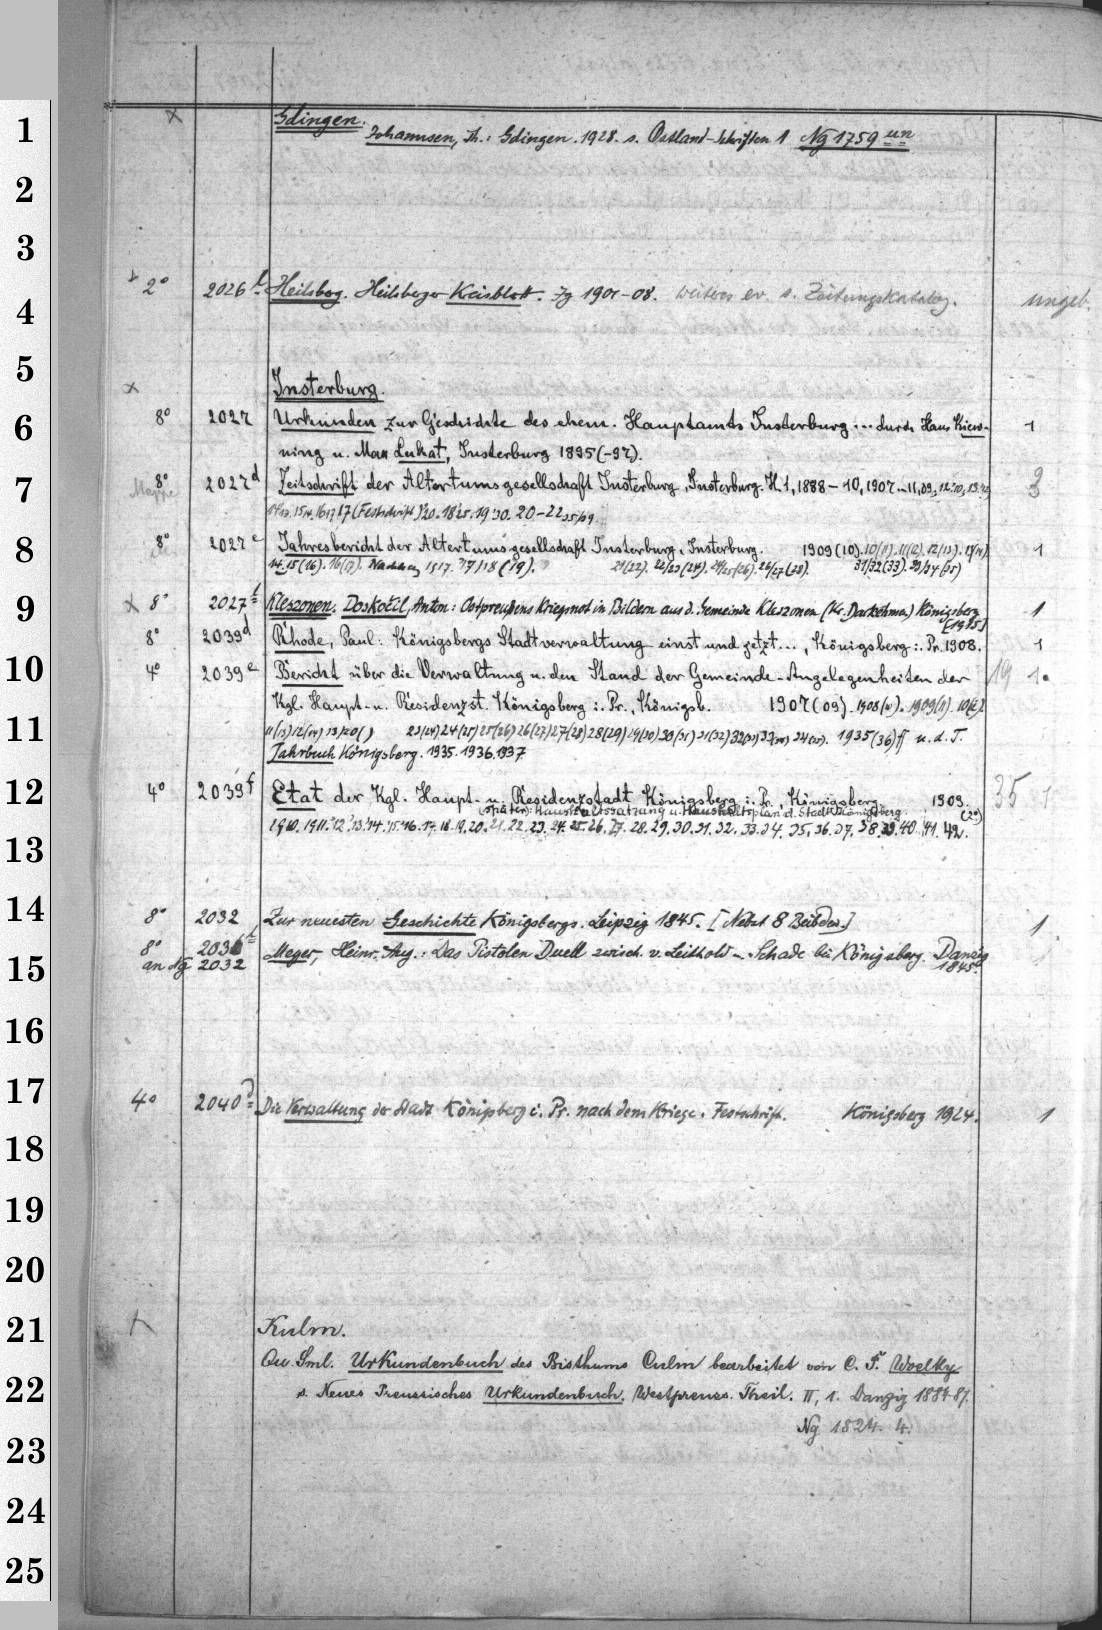 1
Gdingen.
Johannsen, Th.: Gdingen. 1928. s. Ostland-Schriften 1 Ng 1759 un
2
3
2° 2026 f Heilsberg. Heilsberger Kreisblatt. Jg 1901-08. weiteres ev. s. Zeitungskatalog. ungeb.
4
5
Insterburg.
6
8° 2027 Urkunden zur Geschichte des ehem. Hauptamts Insterburg ... durch Hans Kiew- 1
ning u. Max Lukat, Insterburg 1895(-97).
7
8° 2027 d Zeitschrift der Altertumsgesellschaft Insterburg, Insterburg. H 1, 1888 - 10, 1907 3
Mappe
17 (Festschrift) 20-22
8
8° 2027 e Jahresbericht der Altertumsgesellschaft Insterburg, Insterburg. 1909 (10). 10(11). 11(12). 12/13). 1
14. 15(16). 17/18 (19). 21(22). 22/23 (24). 24/25(26). 26/27(28). 31/32(33). 33/34(35)
9
8° 2027 f Kleszonen. Doskočil, Anton: Ostpreußens Kriegsnot in Bildern aus d. Gemeinde Kleszonen (Kr. Darkehmen) Königsberg 1
[1915]
8° 2039 d Rhode, Paul: Königsbergs Stadtverwaltung einst und jetzt..., Königsberg i. Pr. 1908. 1
10
4° 2039 e Bericht über die Verwaltung u. den Stand der Gemeinde-Angelegenheiten der 19 1.
Kgl. Haupt- u. Residenzst. Königsberg i. Pr., Königsb. 1907 (09). 1908
11
23(24) 24(25) 25(26) 26(27) 27(28) 28(29) 30(31) 31(32) 1935 (36) ff u. d. T.
Jahrbuch Königsberg. 1935. 1936. 1937
12
4° 2039 f Etat der Kgl. Haupt- u. Residenzstadt Königsberg i. Pr., Königsberg 1909. 35 1
(später: Haushaltssatzung u. Haushaltsplan d. Stadt Königsberg. (2°)
1910. 1911. '12. '13. '14. '15. '16. 17. 18. 19. 20. 21. 22. 23. 24. 25. 26. 27. 28. 29. 30. 31. 32. 33. 34. 35. 36. 37. 38. 39. 40. 41. 42.
13
14
8° 2032 Zur neuesten Geschichte Königsbergs. Leipzig 1845. [Nebst 8 Beibden.] 1
15
8° Meyer, Heinr. Aug.: Das Pistolen Duell zwisch. v. Leithold u. Schade bei Königsberg. Danzig 1
an Ng 2032 1845.
16
17
4° 2040 d Die Verwaltung der Stadt Königsberg i. Pr. nach dem Kriege. Festschrift. Königsberg 1924. 1
18
19
20
21
Kulm.
Qu. Sml. Urkundenbuch des Bisthums Culm bearbeitet von C. P. Woelky
22
s. Neues Preussisches Urkundenbuch. Westpreuss. Theil. II, 1. Danzig 1884-87.
Ng 1824. 4.
23
24
25